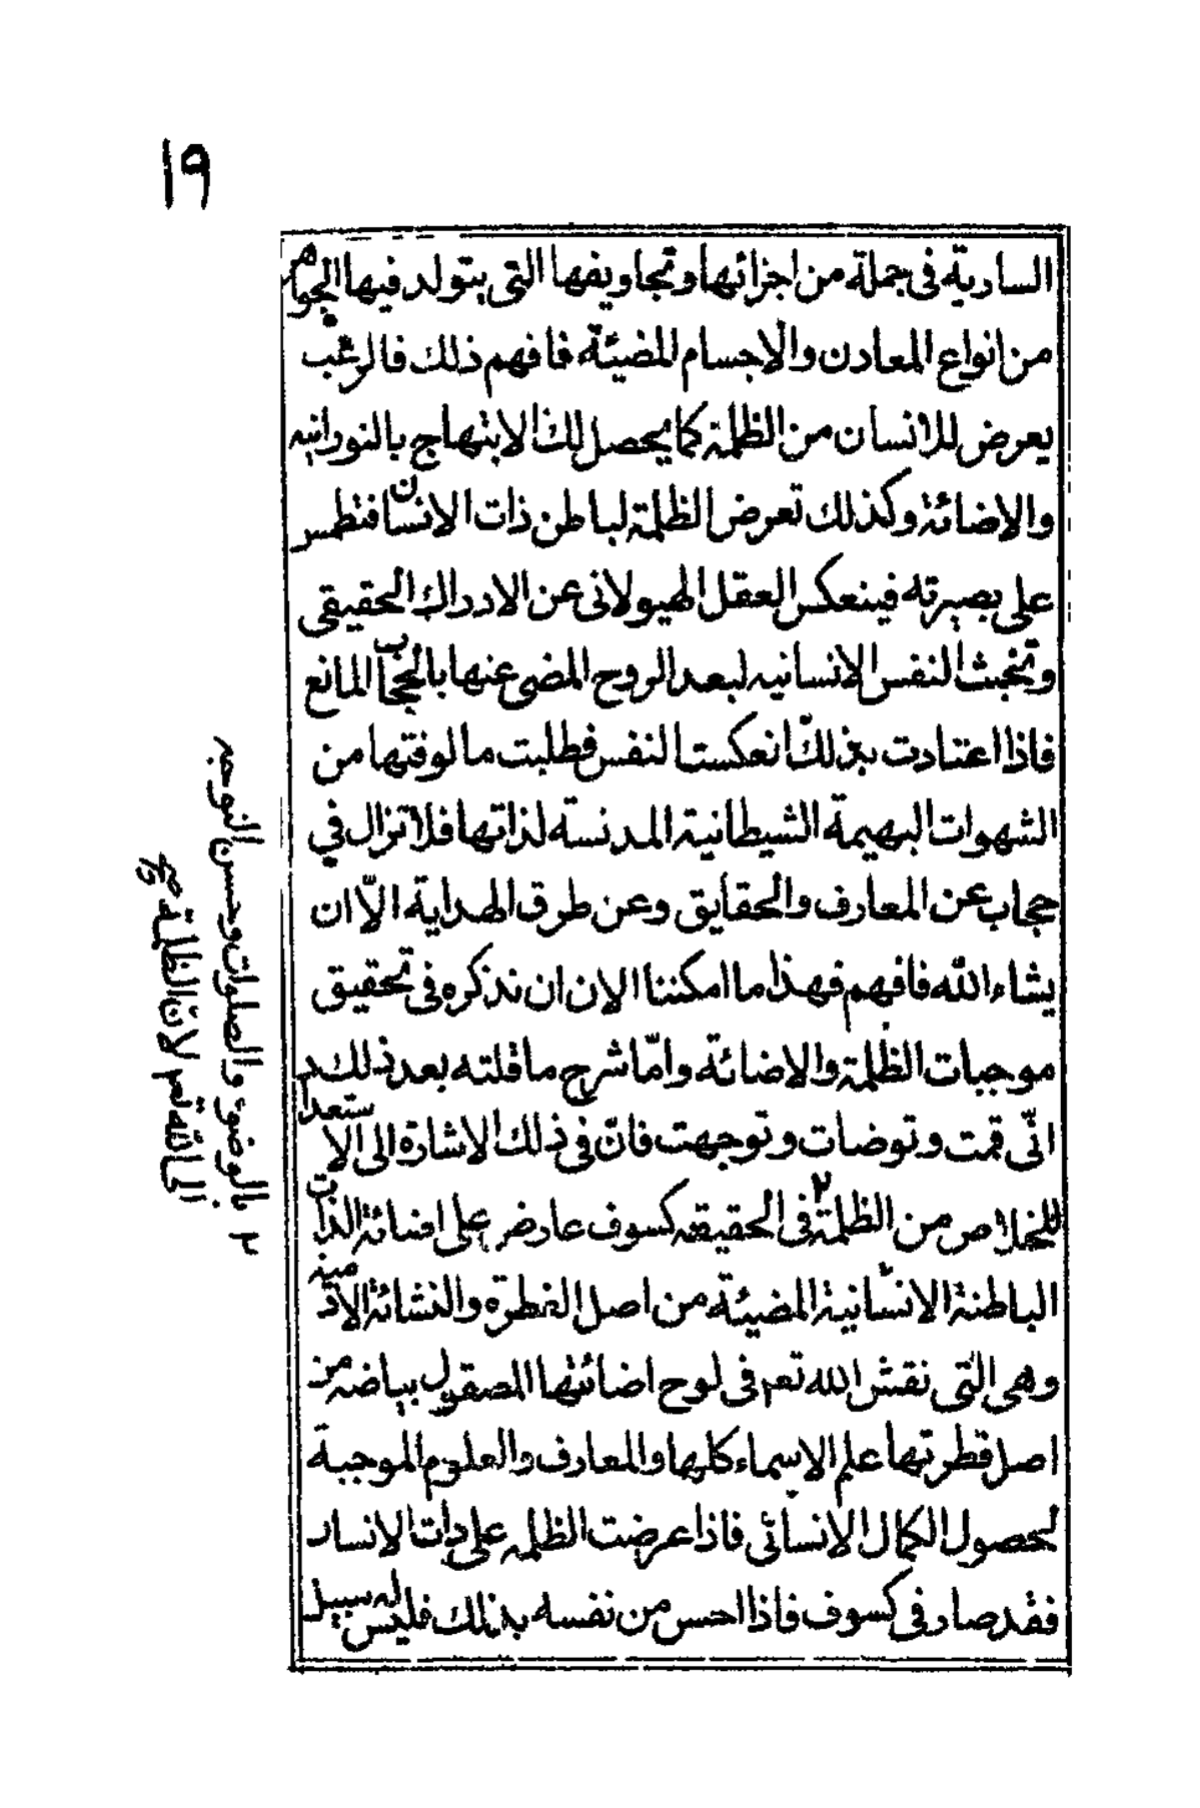 ١٩
السارية فى جملة من اجزائها وتجاويفها التى يتولد فيها الجواهر
من انواع المعادن والاجسام المضيئة فافهم ذلك فالرعب
يعرض للانسان من الظلمة كما يحصل لك الابتهاج بالنورانيه
والاضائة وكذلك تعرض الظلمة لباطن ذات الانسان فتطمس
على بصيرته فينعكس العقل الهيولانى عن الادراك الحقيقى
وتخبث النفس الانسانيه لبعد الروح المضى عنها بالحجاب المانع
فاذا اعتادت بذلك انعكست النفس فطلبت مالوفتها من
الشهوات البهيمة الشيطانية المدنسة لذاتها فلا تزال في
حجاب عن المعارف والحقايق وعن طرق الهداية الّا ان
يشاء الله فافهم فهذا ما امكننا الان ان نذكره فى تحقيق
موجبات الظلمة والاضائة وامّا شرح ما قلته بعد ذلك
انّى قمت وتوضات وتوجهت فانّ فى ذلك الاشارة الى الاستعداد
للخلاص من الظلمة ٢ فى الحقيقه كسوف عارض على اضائة الذات
الباطنة الانسانية المضيئة من اصل الفطرة والنشائة الادمية
وهى التى نقش الله تعم فى لوح اضائتها المصقول بياضه من
اصل فطرتها علم الاسماء كلها والمعارف والعلوم الموجبة
لحصول الكمال الانسانى فاذا عرضت الظلمه على ذات الانسان
فقد صار فى كسوف فاذا احس من نفسه بذلك فليس له سبيل
٢ بالوضوء والصلوات وحسن التوجه
الى الله تعم لانّ الظلمة صح